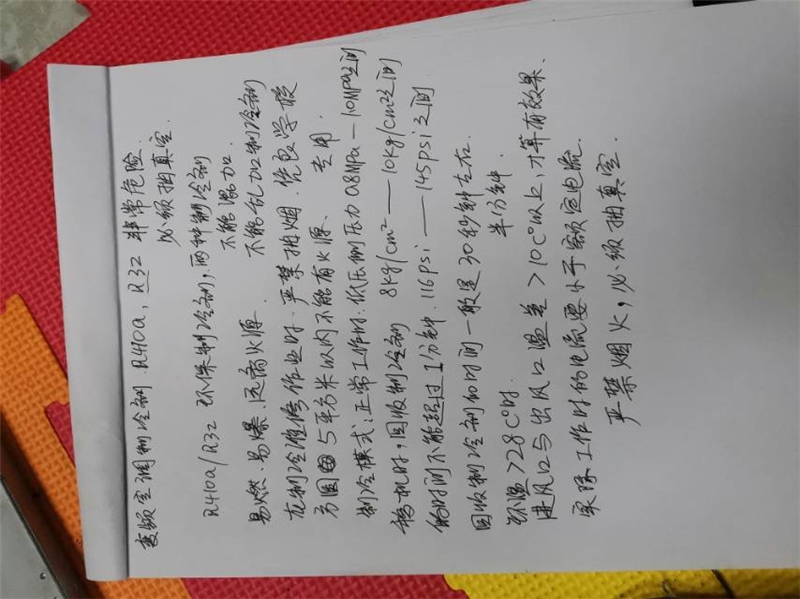 变频空调制冷剂 R410a, R32 非常危险.
必须抽真空.
R410a/R32 环保制冷剂, 两种制冷剂
不能混加.
易燃.易爆.远离火源. 不能乱加制冷剂
在制冷维修作业时. 严禁抽烟. 优良学校
方圆 5平方米以内不能有火源. 专用.
制冷模式:正常工作时.低压侧压力 0.8MPa—1.0MPa之间
移机时, 回收制冷剂 8kg/cm²—10kg/cm²之间
的时间不能超过1分钟. 116psi—145psi之间
回收制冷剂的时间一般是30秒钟左右.
半分钟.
环温>28C°时.
进风口与出风口温差>10C°以上, 才算有效果.
实际工作时的电流要小于额定电流.
严禁烟火, 必须抽真空.